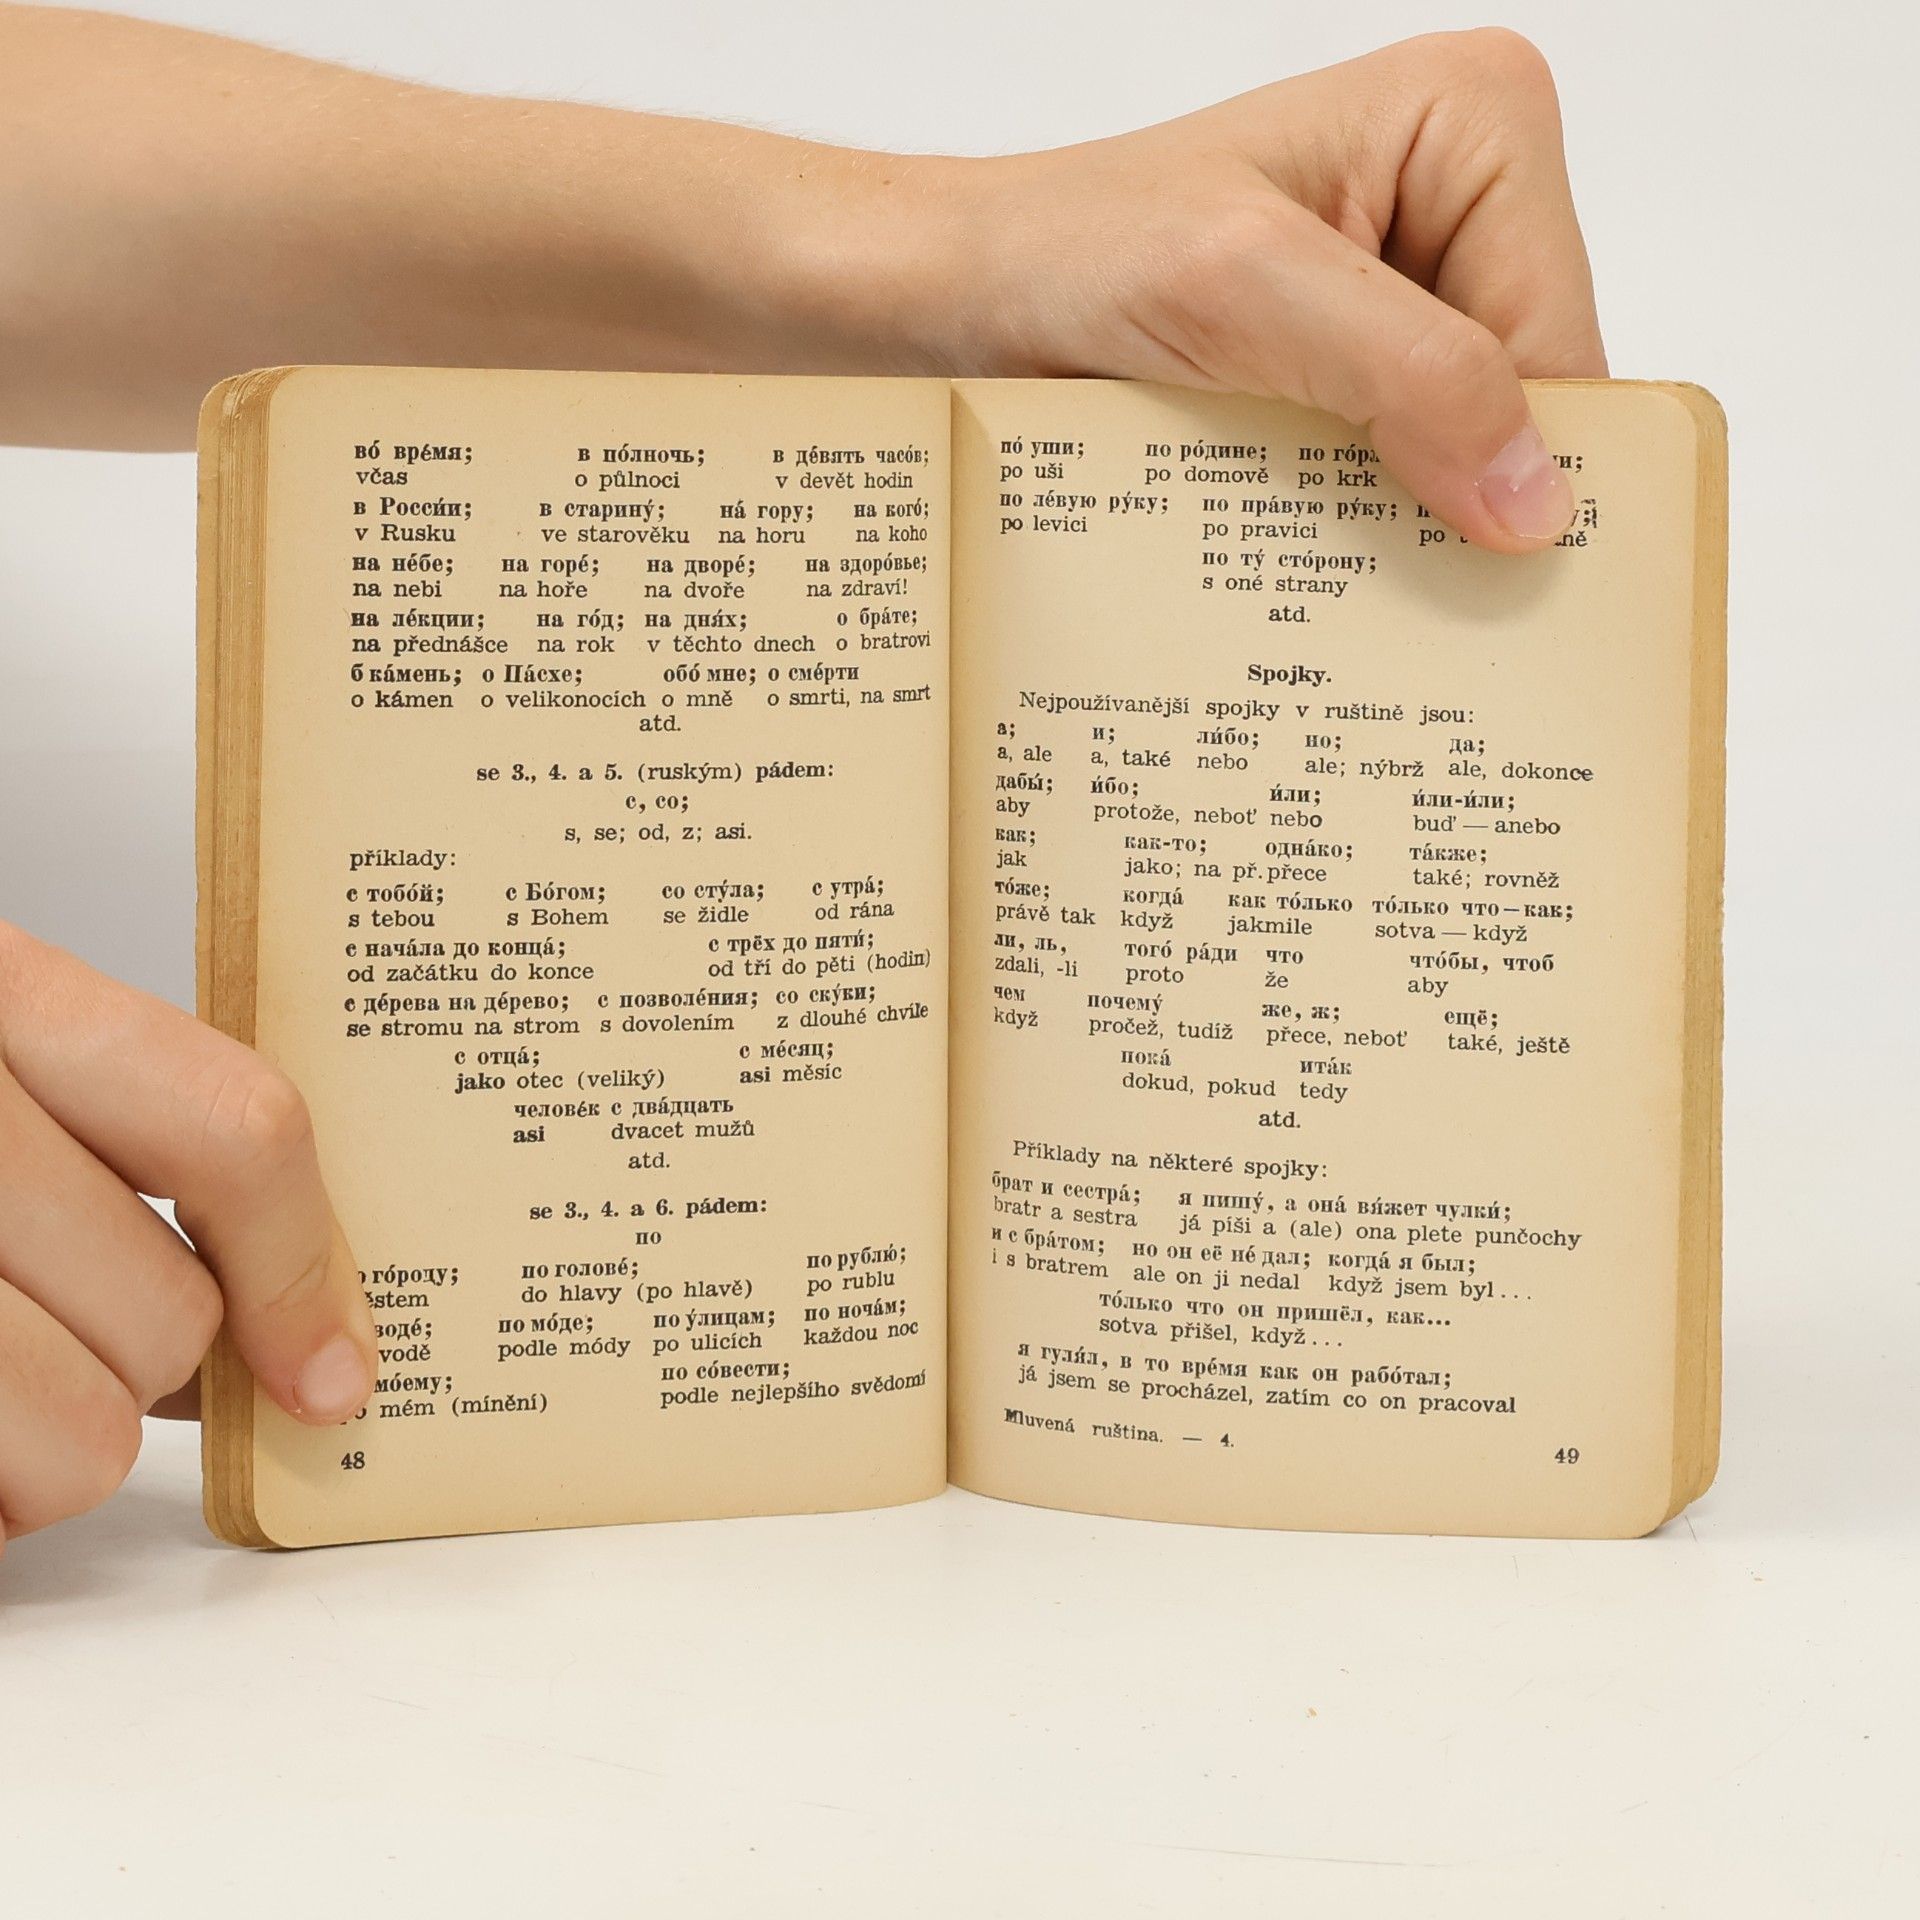 во́ вре́мя; в по́лночь; в де́вять часо́в;
včas o půlnoci v devět hodin
в Росси́и; в старину́; на́ гору; на кого́;
v Rusku ve starověku na horu na koho
на не́бе; на горе́; на дворе́; на здоро́вье;
na nebi na hoře na dvoře na zdraví!
на ле́кции; на го́д; на дня́х; о бра́те;
na přednášce na rok v těchto dnech o bratrovi
б ка́мень; о Па́схе; обо́ мне; о сме́рти
o kámen o velikonocích o mně o smrti, na smrt
atd.
se 3., 4. a 5. (ruským) pádem:
с, со;
s, se; od, z; asi.
příklady:
с тобо́й; с Бо́гом; со сту́ла; с утра́;
s tebou s Bohem se židle od rána
с нача́ла до конца́; с трёх до пяти́;
od začátku do konce od tří do pěti (hodin)
с де́рева на де́рево; с позволе́ния; со ску́ки;
se stromu na strom s dovolením z dlouhé chvíle
с отца́; с ме́сяц;
jako otec (veliký) asi měsíc
челове́к с два́дцать
asi dvacet mužů
atd.
se 3., 4. a 6. pádem:
по
го́роду; по голове́; по рублю́;
do hlavy (po hlavě) po rublu
по мо́де; по у́лицам; по ноча́м;
vodě podle módy po ulicích každou noc
мо́ему; по со́вести;
mém (mínění) podle nejlepšího svědomí
48
по́ уши; по ро́дине; по
po uši po domově po krk
по ле́вую ру́ку; по пра́вую ру́ку;
po levici po pravici po
по ту́ сто́рону;
s oné strany
atd.
Spojky.
Nejpoužívanější spojky v ruštině jsou:
а; и; ли́бо; но; да;
a, ale a, také nebo ale; nýbrž ale, dokonce
дабы́; и́бо; и́ли; и́ли-и́ли;
aby protože, neboť nebo buď — anebo
как; как-то; одна́ко; та́кже;
jak jako; na př. přece také; rovněž
то́же; когда́ как то́лько то́лько что — как;
právě tak když jakmile sotva — když
ли, ль, того́ ра́ди что что́бы, чтоб
zdali, -li proto že aby
чем почему́ же, ж; ещё;
když pročež, tudíž přece, neboť také, ještě
пока́ ита́к
dokud, pokud tedy
atd.
Příklady na některé spojky:
брат и сестра́; я пишу́, а она́ вя́жет чулки́;
bratr a sestra já píši a (ale) ona plete punčochy
и с бра́том; но он её не́ дал; когда́ я был;
i s bratrem ale on ji nedal když jsem byl...
то́лько что он пришёл, как...
sotva přišel, když...
я гуля́л, в то вре́мя как он рабо́тал;
já jsem se procházel, zatím co on pracoval
Mluvená ruština. — 4.
49